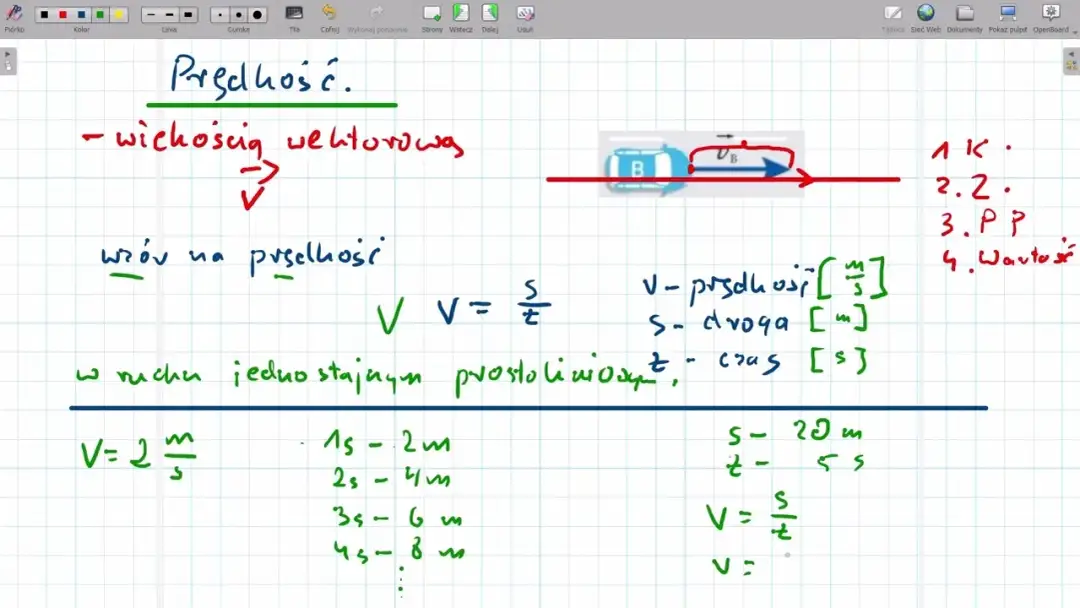 Piórko
Kolor
Linia
Gumka
Tła
Cofnij
Strony
Wstecz
Dalej
Usuń
Sieć Web
Dokumenty
Pokaż pulpit
OpenBoard
Prędkość.
- wielkością wektorową
V
B
v B
1 K .
2. Z .
3. P P
4. Wartość
wzór na prędkość
V V = s/t
v - prędkość [m/s]
s - droga [m]
t - czas [s]
w ruchu jednostajnym prostoliniowym.
V = 2 m/s
1s - 2m
2s - 4m
3s - 6 m
4s - 8 m
s - 20 m
t - 5 s
V = s/t
V =